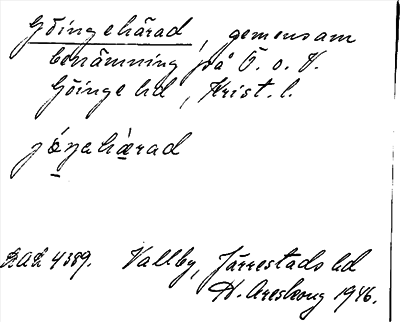 Göingehärad, gemensam
benämning på Ö. o. V.
Göinge hd, Krist. l.
jöŋahärad
DAL 4389. Vallby, Järrestads hd
H. Areskoug 1946.